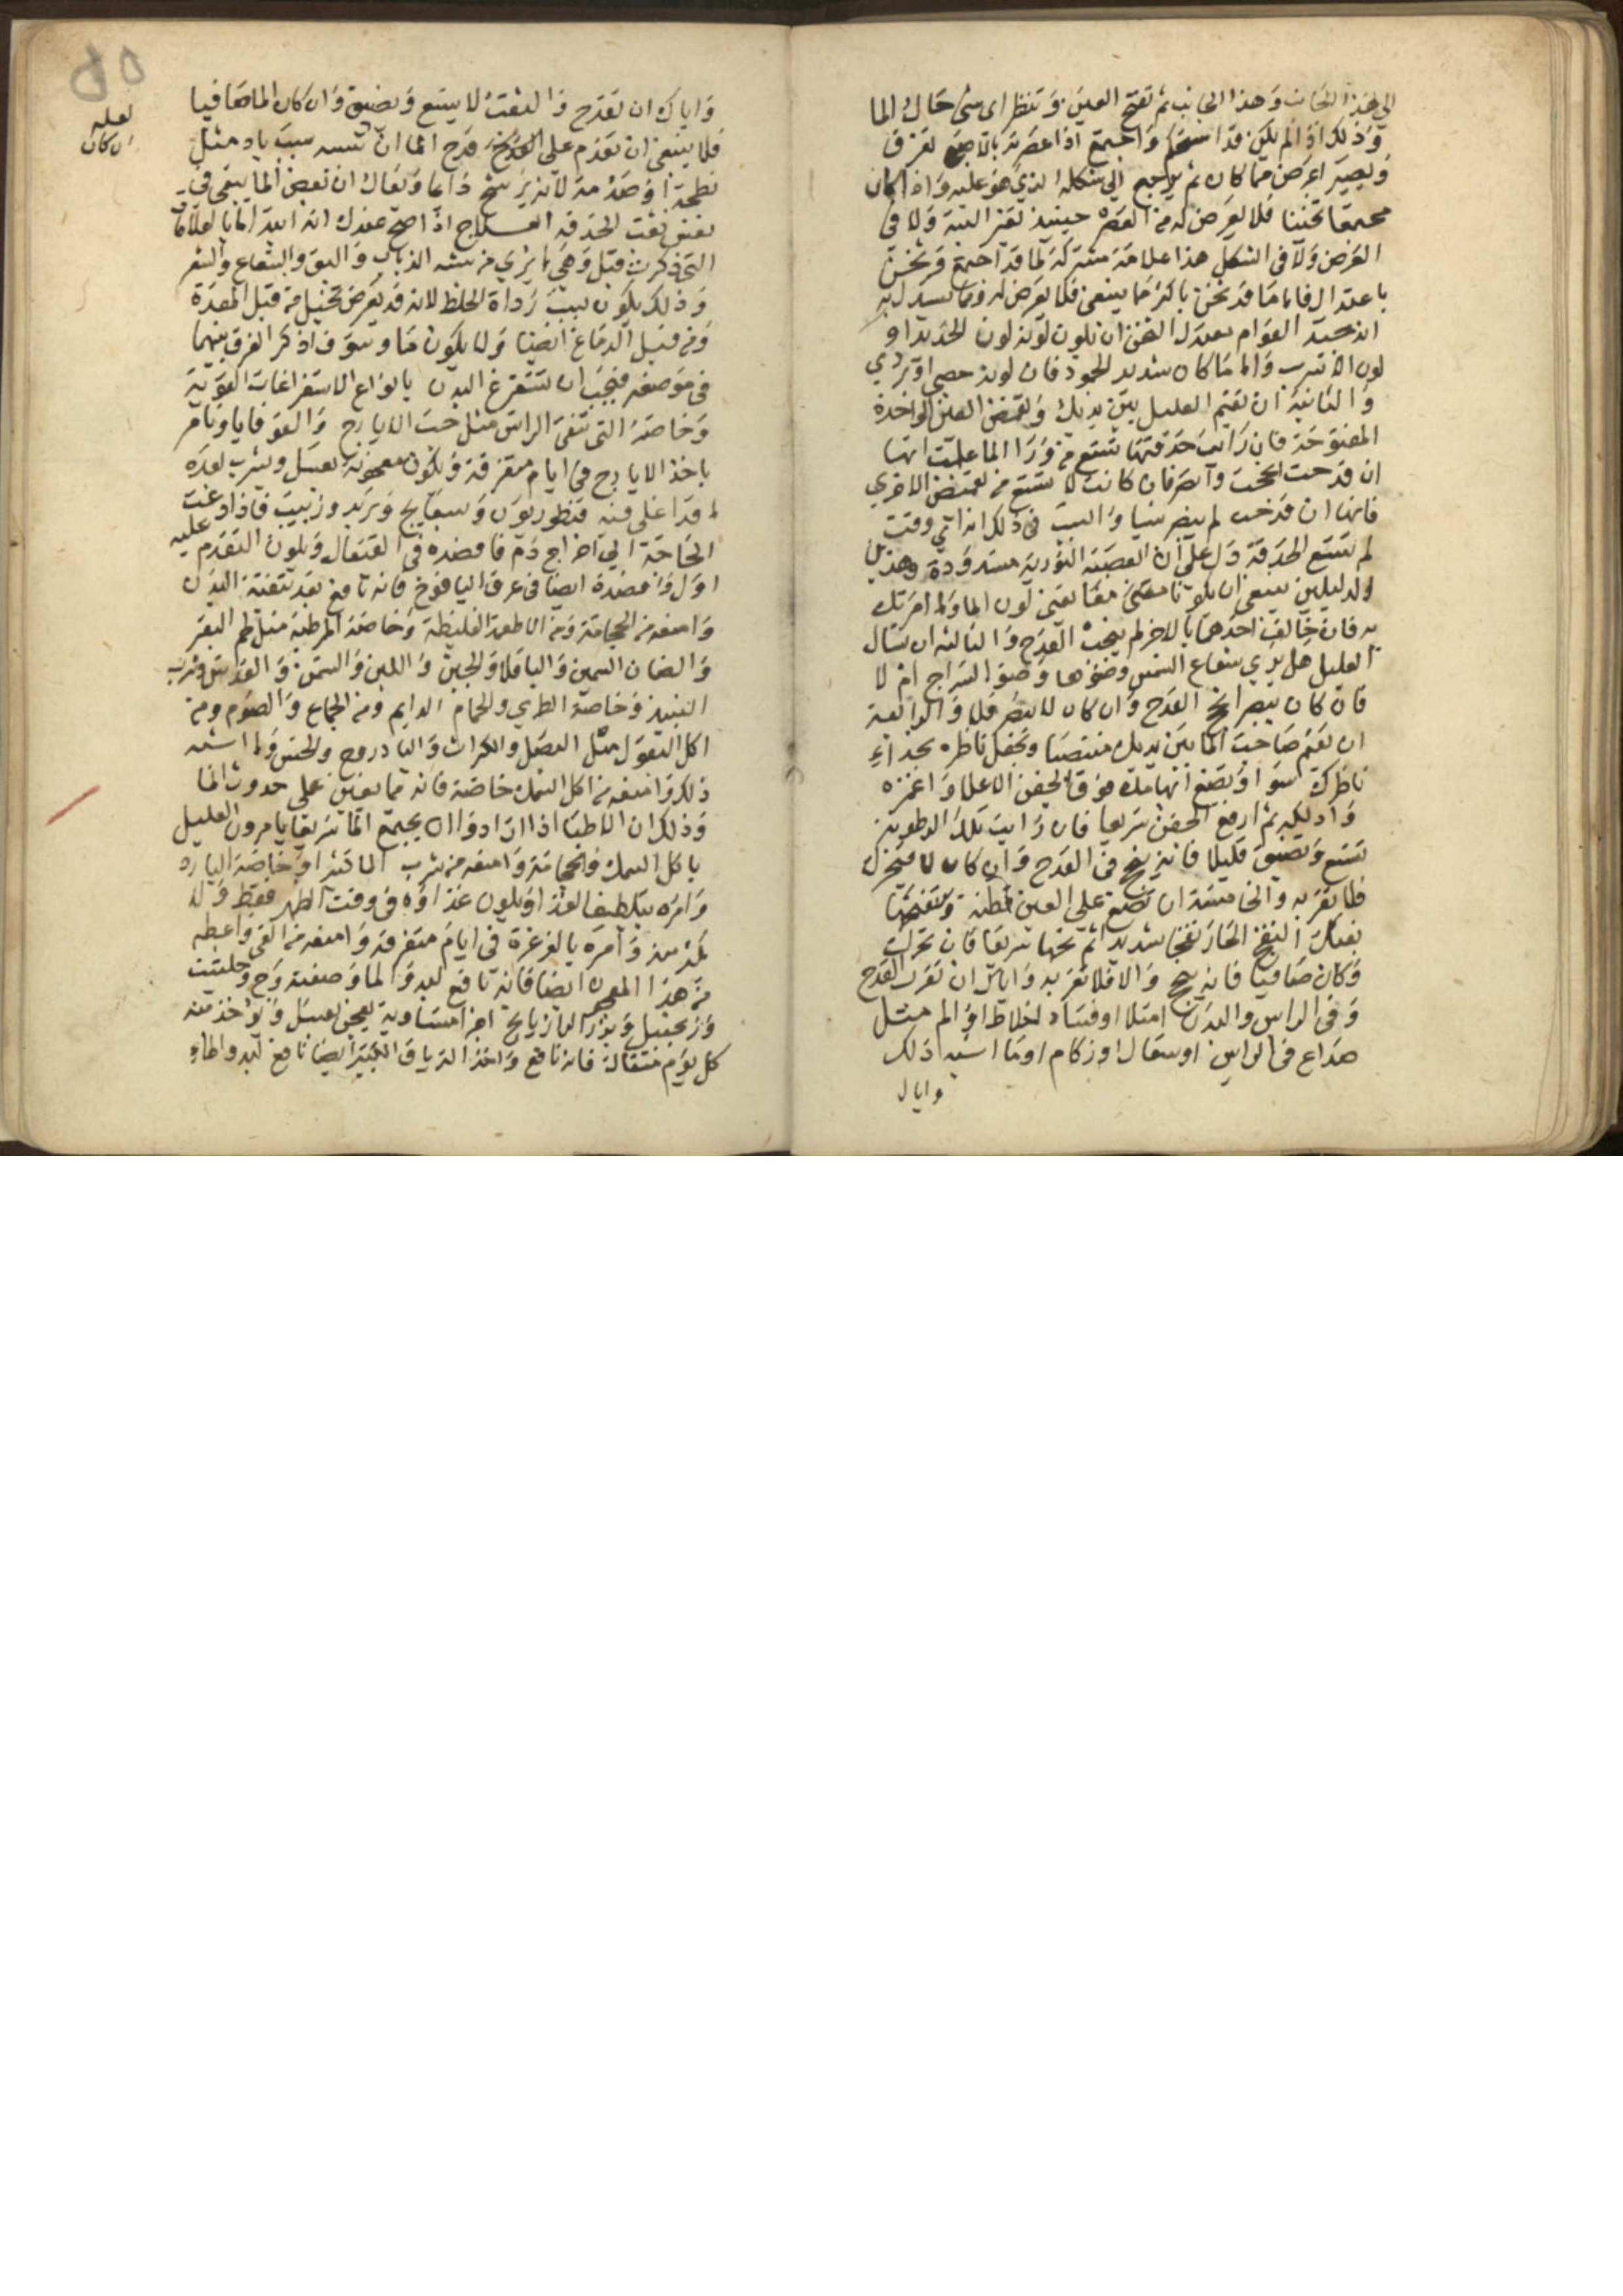 الي هذا الجانب وهذا الجانب ثم تفتح العين وتنظر اى شى حال الما
وذلك اذا لم يكن قد استحكم واجتمع اذا عصرته بالاصبع تفرق
ويصير اعرض مما كان ثم يرجع الي شكله الذي هو عليه واذا كان
مجتمعا ثخينا فلا يعرض له من العصر حينيذ تفرق البتة ولا فى
العرض ولا فى الشكل هذا علامة مشتركة لما قد اجتمع وثخن
باعتدال فاما ما قد ثخن باكثر مما ينبغى فلا يعرض له ومما يستدل به
انه جيد القوام معتدل الثخن ان يكون لونه لون الحديد او
لون الاسرب والما ما كان شديد الجمود فان لونه جصي او بردي
والثانية ان تقيم العليل بين يديك وتغمض العين الواحدة
المفتوحة فان رايت حدقتها تتسع من ورا الما علمت انها
ان قدحت انجحت وابصر فان كانت لا تتسع من تغميض الاخري
فانها ان قدحت لم يبصر شيا والسبب فى ذلك انه اي وقت
لم تتسع الحدقة دل على ان العصبة النورية مسدودة وهذين
الدليلين ينبغى ان يكونا معك معا يعنى لون الما وما امرتك
به فان خالف احدهما بالاخر لم ينجب القدح والثالثه ان تسال
العليل هل يري شعاع الشمس وضوءها وضو السراج ام لا
فان كان يبصر انجح القدح وان كان لا يبصر فلا والرابعة
ان تقيم صاحب الما بين يديك منتصبا وتجعل ناظره بحذاء
ناظرك سوا وتضع ابهامك فوق الجفن الاعلا واغمزه
وادلكه ثم ارفع الجفن سريعا فان رايت تلك الرطوبة
تتسع وتضيق قليلا فانه ينجح فى القدح وان كان لا يتحرك
فلا تقربه والخامسة ان تضع على العين قطنة وتنفخها
بفمك النفخ الحار نفخا شديدا ثم نحها سريعا فان تحرك
وكان صافيا فانه ينجح والا فلا تقربه واياك ان تقرب القدح
وفى الراس والبدن امتلا او فساد اخلاط او الم مثل
صداع فى الراس او سعال او زكام او ما اشبه ذلك
واياك
واياك ان تقدح والثقب لا يتسع ويضيق وان كان الما صافيا
فلا ينبغى ان تقدم على القدح قدح الما ان سببه باد مثل
لعله
ان كان
لطمة او صدمة لانه يرسخ دايما ويقال ان بعض الما يبقى فى
نفس ثقب الحدقه العلاج اذا صح عندك انه ابتدا الما بالعلامات
التى ذكرت قبل وهي ما يري من شبه الذباب والبق والشعاع والشعر
وذلك يكون بسبب رداة الخلط لانه قد يعرض تخيل من قبل المعدة
ومن قبل الدماغ ايضا ولا يكون ما وسوف اذكر الفرق بينهما
فى موضعه فيجب ان تستفرغ البدن بانواع الاستفراغات القوية
وخاصة التى تنقى الراس مثل حب الايارج والقوقايا وتامر
باخذ الايارج فى ايام متفرقة وتكون معجونة بعسل ويشرب بعده
ما قد اغلى فيه قنطوريون وبسفايج وتربد وزبيب فاذا دعت
الحاجة الي اخراج دم فافصده فى القيفال ويكون التقدم عليه
اول وافصده ايضا فى عرق اليافوخ فانه نافع بعد تنقية البدن
وامنعه من الحجامة ومن الاطعمة الغليظة وخاصة المرطبة مثل لحم البقر
والضان السمين والباقلا والجبن واللبن والسمن والعدس وشرب
النبيذ وخاصة الطري والحمام الدايم ومن الجماع والصوم ومن
اكل البقول مثل البصل والكراث والبادروج والخس وما اشبه
ذلك وامنعه من اكل السمك خاصة فانه مما يعين على حدوث الما
وذلك ان الاطبا اذا ارادوا ان يجتمع الما سريعا يامرون العليل
باكل السمك والحجامة وامنعه من شرب الما كثيرا وخاصة البارد
وامره بتلطيف الغذا ويكون غذاؤه فى وقت الظهر فقط ولا
يكثر منه وامره بالغرغرة فى ايام متفرقة وامنعه من القى واعطه
من هذا المعجون ايضا فانه نافع لبدو الما وصفته وج وحلتيت
وزنجبيل وبزر الرازيانج اجزا متساوية يعجن بعسل ويؤخذ منه
كل يوم مثقالة فانه نافع واخذ الترياق الكبير ايضا نافع لبدو الماء